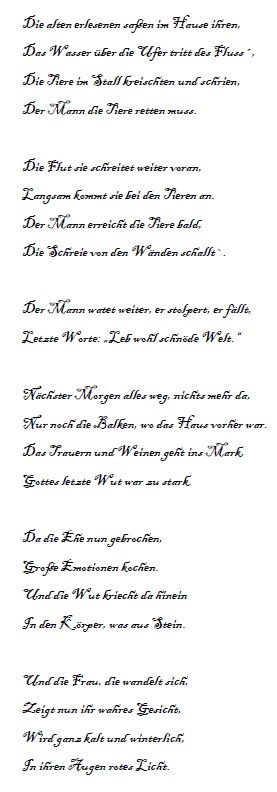 Die alten erlesenen saßen im Hause ihren,
Das Wasser über die Ufer tritt des Fluss´,
Die Tiere im Stall kreischten und schrien,
Der Mann die Tiere retten muss.
Die Flut sie schreitet weiter voran,
Langsam kommt sie bei den Tieren an.
Der Mann erreicht die Tiere bald,
Die Schreie von den Wänden schallt`.
Der Mann watet weiter, er stolpert, er fällt,
Letzte Worte: „Leb wohl schnöde Welt.“
Nächster Morgen alles weg, nichts mehr da,
Nur noch die Balken, wo das Haus vorher war.
Das Trauern und Weinen geht ins Mark
Gottes letzte Wut war zu stark
Da die Ehe nun gebrochen,
Große Emotionen kochen.
Und die Wut kriecht da hinein
In den Körper, was aus Stein.
Und die Frau, die wandelt sich,
Zeigt nun ihr wahres Gesicht,
Wird ganz kalt und winterlich,
In ihren Augen rotes Licht.